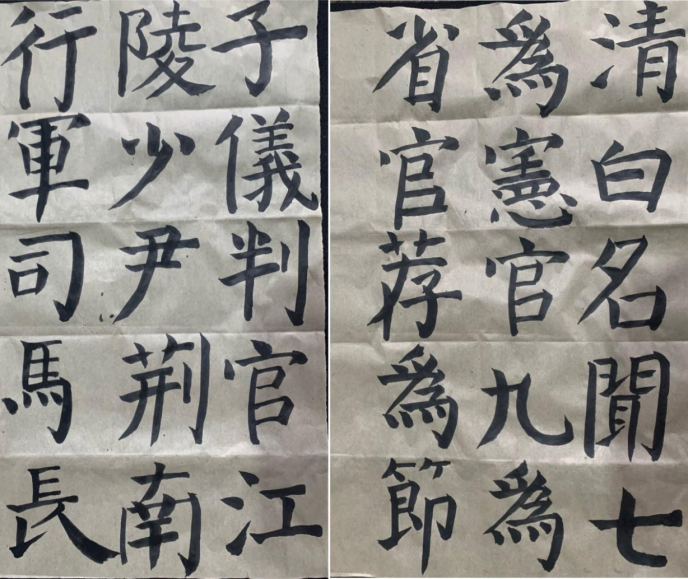 清白名聞七
爲憲官九爲
省官荐爲節
子儀判官江
陵少尹荆南
行軍司馬長